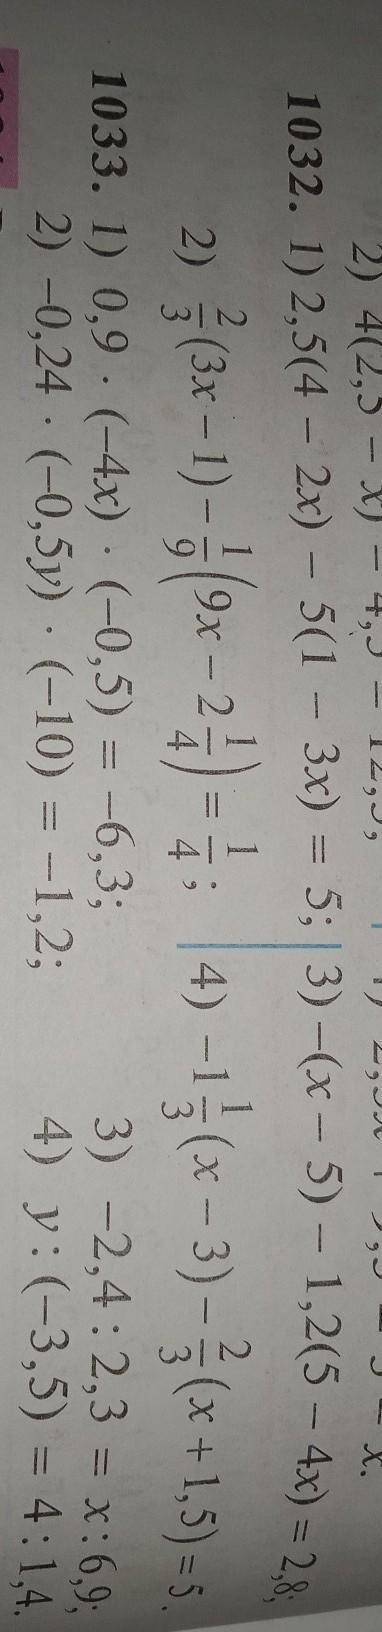 2) 4(2,5 – x) – 4,5 = 12,5;
1032. 1) 2,5(4 – 2x) – 5(1 – 3x) = 5; 3) –(x – 5) – 1,2(5 – 4x) = 2,8;
2) 2/3(3x – 1) – 1/9(9x – 2 1/4) = 1/4; 4) –1 1/3(x – 3) – 2/3(x + 1,5) = 5.
1033. 1) 0,9 · (–4x) · (–0,5) = –6,3; 3) –2,4 : 2,3 = x : 6,9;
2) –0,24 · (–0,5y) · (–10) = –1,2; 4) y : (–3,5) = 4 : 1,4.